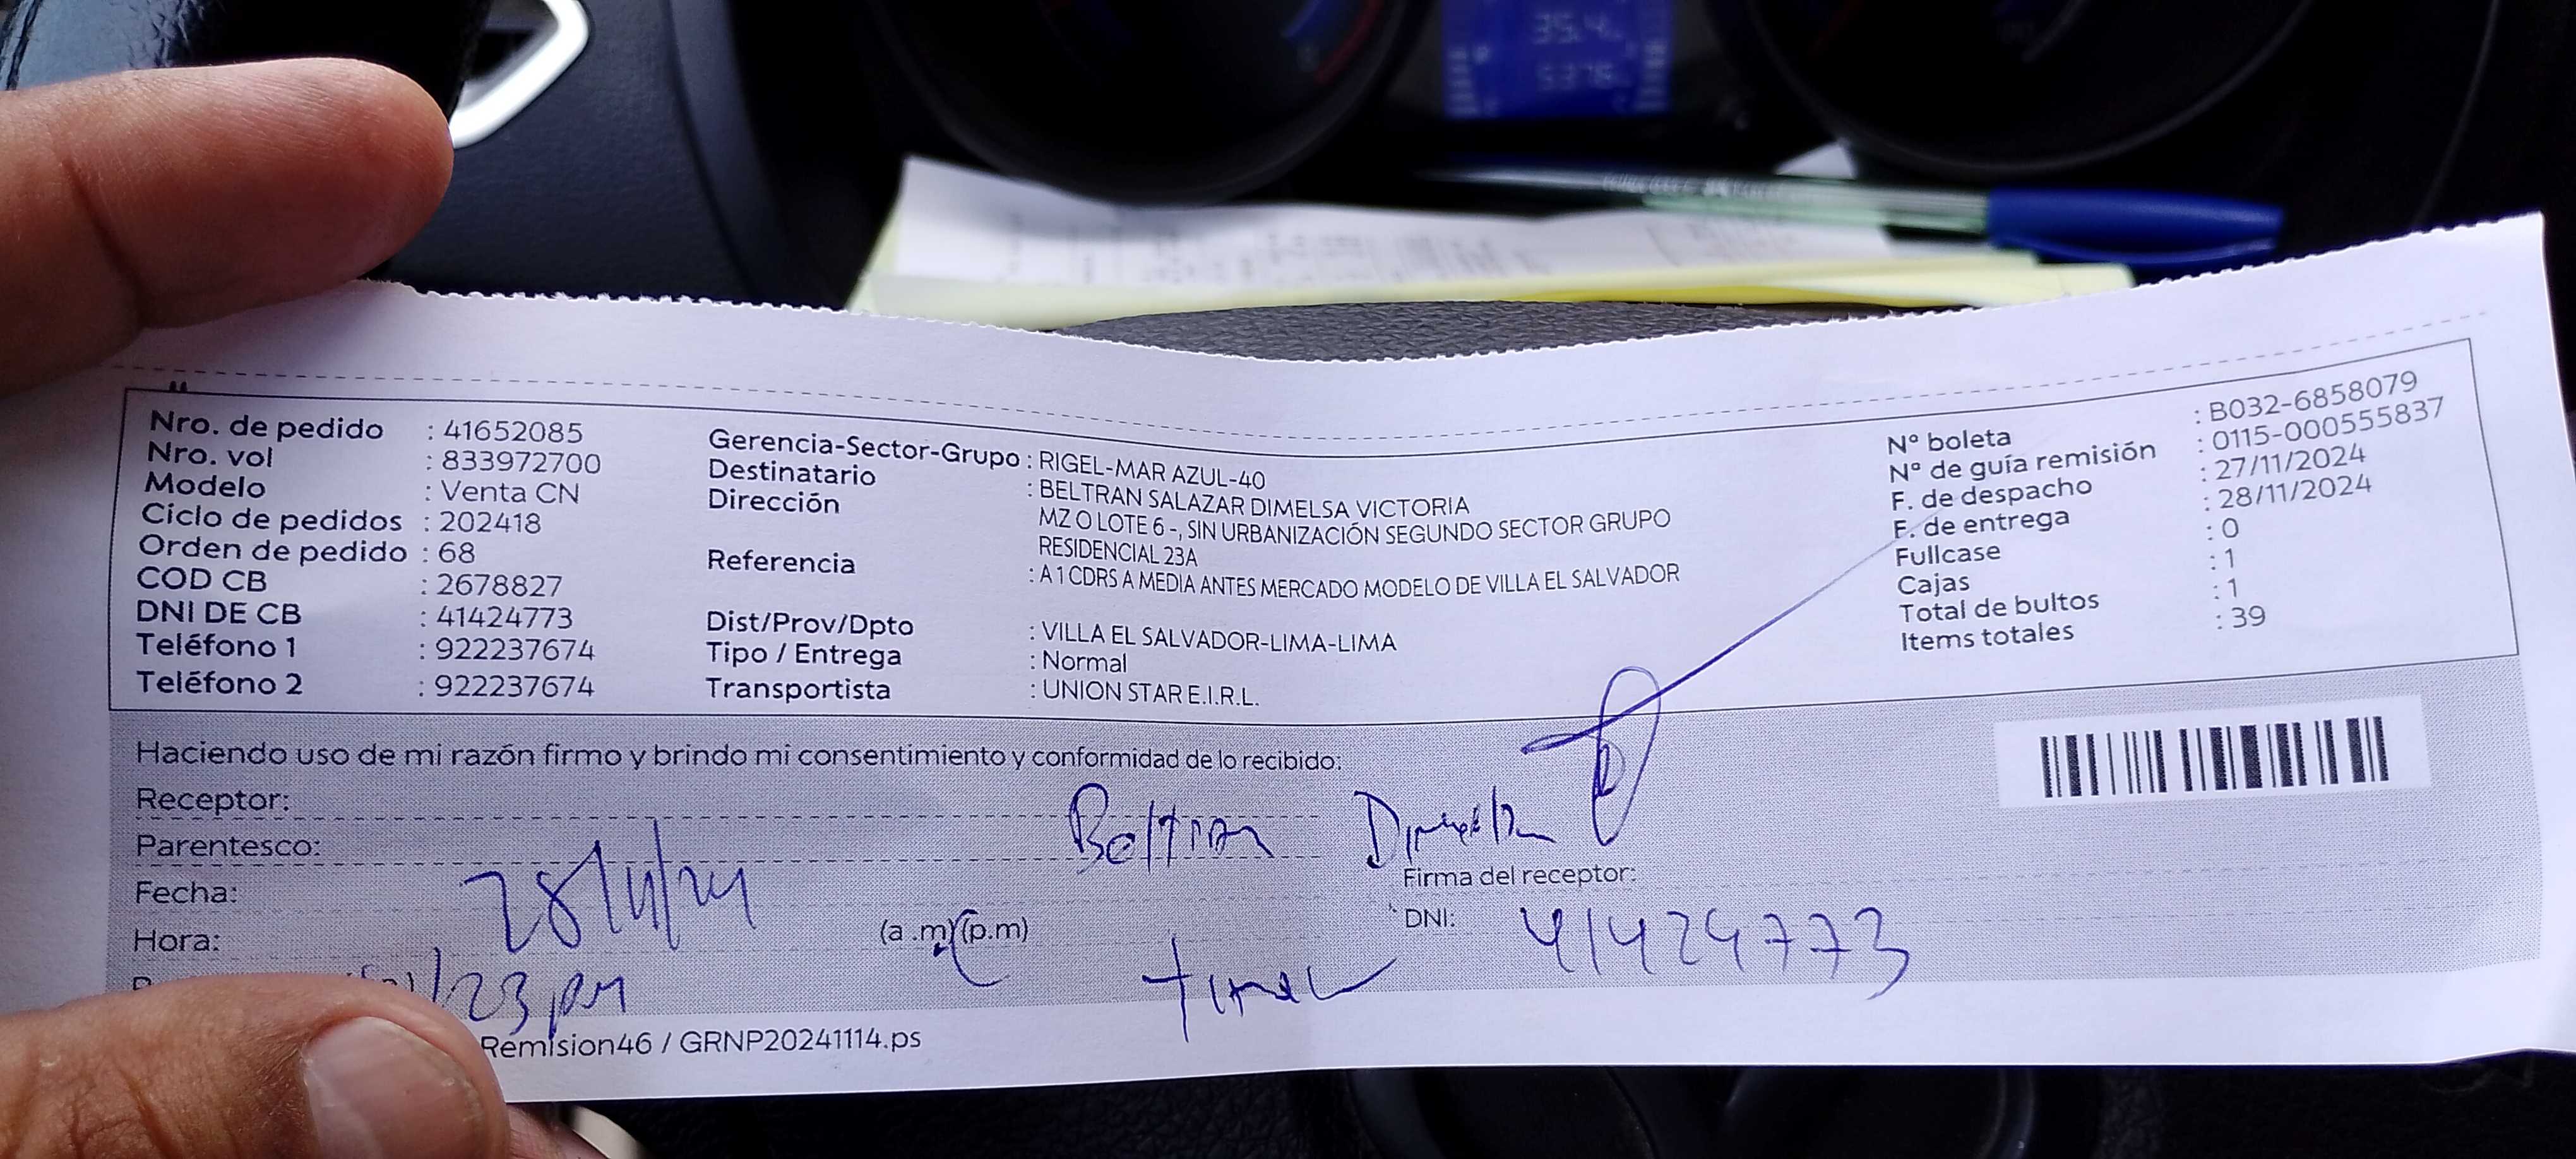 35.4
Nro. de pedido : 41652085
Nro. vol : 833972700
Modelo : Venta CN
Ciclo de pedidos : 202418
Orden de pedido : 68
COD CB : 2678827
DNI DE CB : 41424773
Teléfono 1 : 922237674
Teléfono 2 : 922237674
Gerencia-Sector-Grupo : RIGEL-MAR AZUL-40
Destinatario : BELTRAN SALAZAR DIMELSA VICTORIA
Dirección MZ O LOTE 6 -, SIN URBANIZACIÓN SEGUNDO SECTOR GRUPO
RESIDENCIAL 23A
Referencia : A 1 CDRS A MEDIA ANTES MERCADO MODELO DE VILLA EL SALVADOR
Dist/Prov/Dpto : VILLA EL SALVADOR-LIMA-LIMA
Tipo / Entrega : Normal
Transportista : UNION STAR E.I.R.L.
Nº boleta : B032-6858079
Nº de guía remisión : 0115-000555837
F. de despacho : 27/11/2024
F. de entrega : 28/11/2024
Fullcase : 0
Cajas : 1
Total de bultos : 1
Items totales : 39
Haciendo uso de mi razón firmo y brindo mi consentimiento y conformidad de lo recibido:
Receptor: Beltran Dimelsa
Parentesco:
Firma del receptor:
Fecha: 28/11/24
Hora: (a .m) (p.m)
DNI: 41424773
23 pm
Remision46 / GRNP20241114.ps